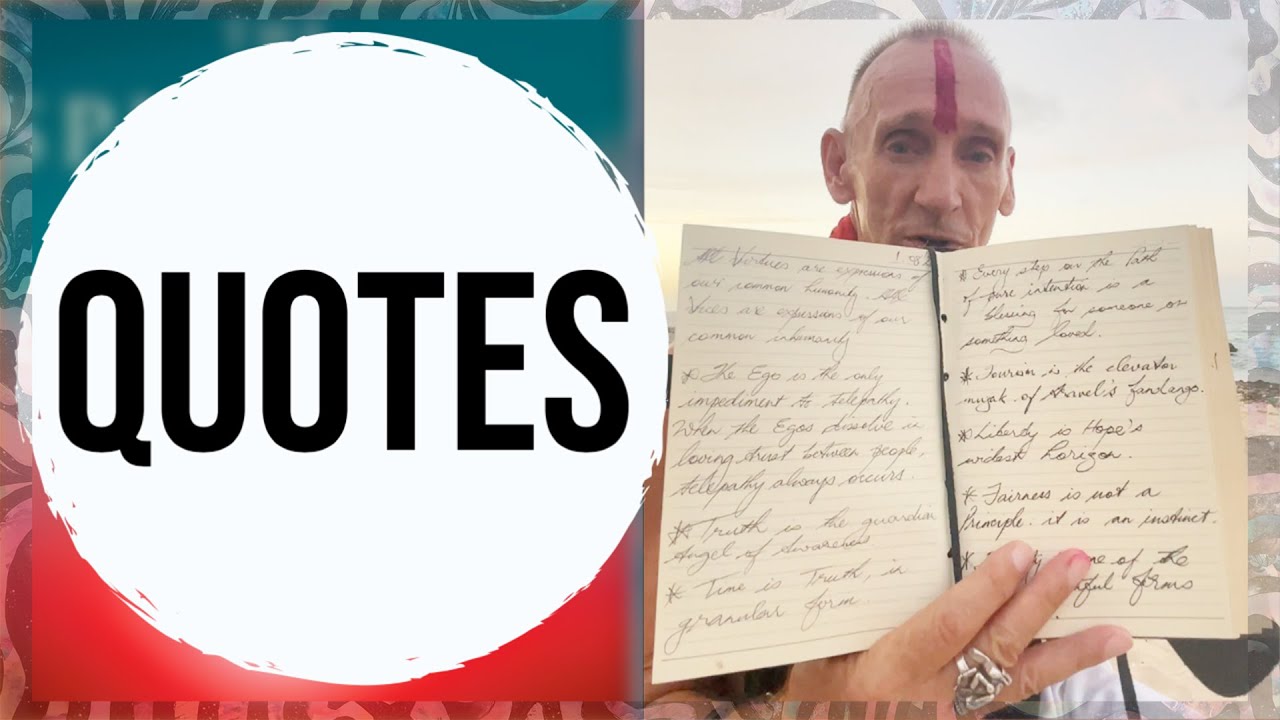 QUOTES
All Virtues are expressions of
our common humanity. All
Vices are expressions of our
common inhumanity
* The Ego is the only
impediment to telepathy.
When the Egos dissolve in
loving trust between people,
telepathy always occurs.
* Truth is the guardian
Angel of Awareness
* Time is Truth, in
granular form.
* Every step on the Path
of pure intention is a
blessing for someone or
something loved.
* Tourism is the elevator
muzak of travel's fandango.
* Liberty is Hope's
widest horizon.
* Fairness is not a
Principle. it is an instinct.
* of the
forms